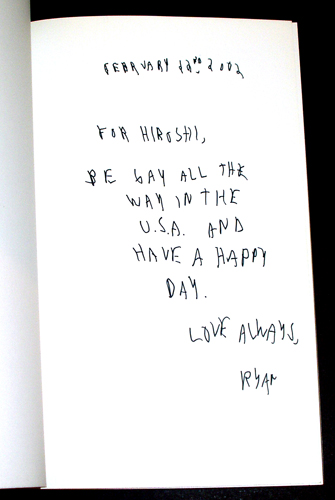 FEBRUARY 22ND 2002
FOR HIROSHI,
BE GAY ALL THE
WAY IN THE
U.S.A. AND
HAVE A HAPPY
DAY.
LOVE ALWAYS,
RYAN